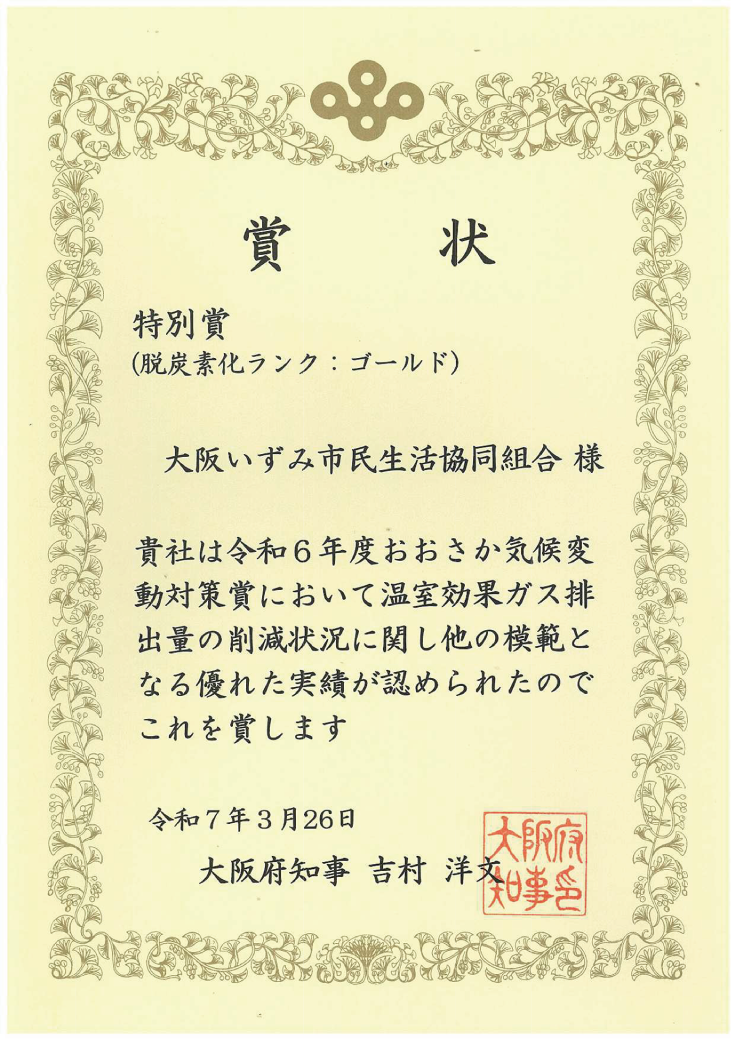 賞 状
特別賞
(脱炭素化ランク：ゴールド)
大阪いずみ市民生活協同組合 様
貴社は令和６年度おおさか気候変
動対策賞において温室効果ガス排
出量の削減状況に関し他の模範と
なる優れた実績が認められたので
これを賞します
令和７年３月26日
大阪府知事 吉村 洋文
大阪府
知事印